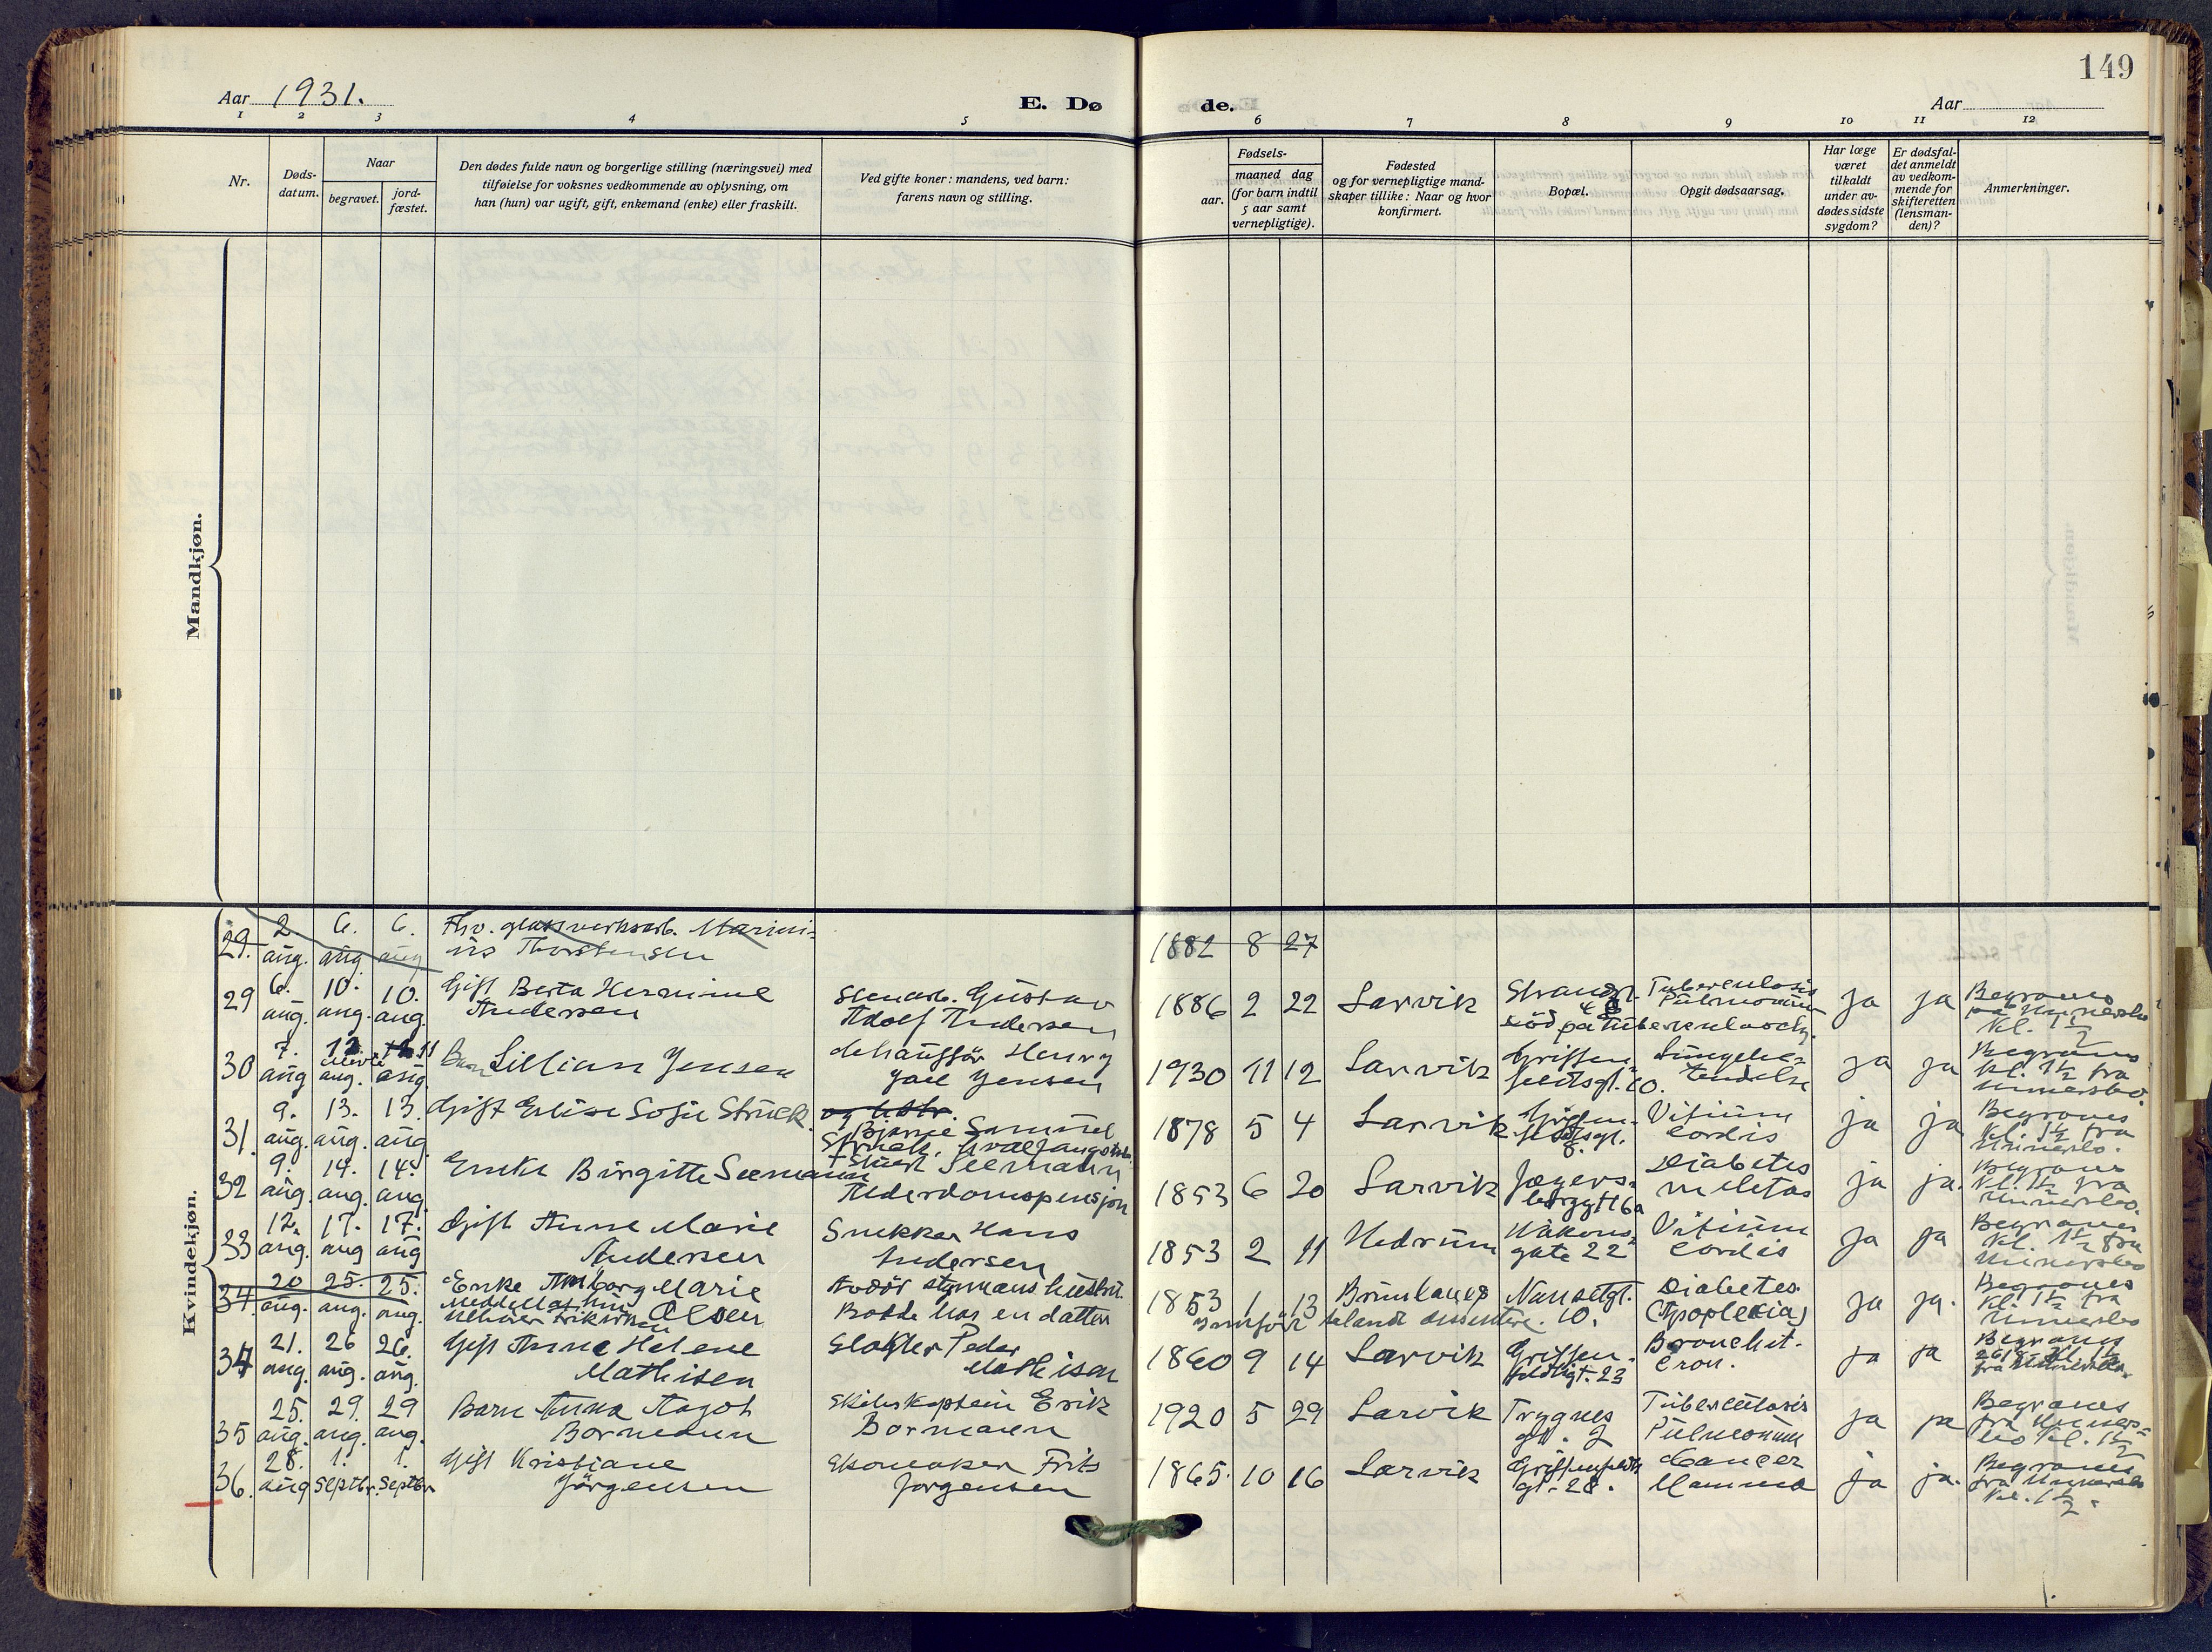 149
Aar 1931.
E. Dø
de.
Aar
1 2 3 4 5 6 7 8 9 10 11 12
Nr.
Døds-
datum.
Naar
begravet.
jord-
fæstet.
Den dødes fulde navn og borgerlige stilling (næringsvei) med
tilføielse for voksnes vedkommende av oplysning, om
han (hun) var ugift, gift, enkemand (enke) eller fraskilt.
Ved gifte koner: mandens, ved barn:
farens navn og stilling.
Fødsels-
aar.
maaned dag
(for barn indtil
5 aar samt
vernepligtige).
Fødested
og for vernepligtige mand-
skaper tillike: Naar og hvor
konfirmert.
Bopæl.
Opgit dødsaarsag.
Har læge
været
tilkaldt
under av-
dødes sidste
sygdom?
Er dødsfal-
det anmeldt
av vedkom-
mende for
skifteretten
(lensman-
den)?
Anmerkninger.
Mandkjøn.
Kvindekjøn.
29. 2 aug. 6. aug. 6. aug
Fhv. glassverksarb. Marini-
us Thorstensen
1882 8 27
29 6. aug. 10. aug. 10. aug.
Gift Berta Hermine
Andersen
Stenarb. Gustav
Adolf Andersen
1886 2 22 Larvik
Strandgt.
Tuberculosis
Pulmonum
ja ja
Begraves
Kl. 1½
30 7. aug
aug.
Barn Lillian Jensen
Henry
Jensen
1930 11 12 Larvik
ja ja
Begraves
Kl. 1½ fra
31. 9. aug. 13. aug. 13. aug.
Gift Elise Sofie Struck.
Bjarne Samuel
Struck.
1878 5 4 Larvik
Vitium
Cordis
ja ja
Begraves
Kl. 1½ fra
32 9. aug. 14. aug. 14. aug.
Enke Birgitte Seemann
Seemann
Alderdomspensjon
1853 6 20 Larvik
Jegers-
Diabetes
meletas
ja ja.
Begraves
Kl. 1½ fra
33 12. aug. 17. aug 17. aug
Gift Anne Marie
Andersen
Snekker Hans
Andersen
1853 2 11 Hedrum
Håkons-
gate 22
Vitium
Cordis
ja ja
Begraves
Kl. 1½ fra
34. 20 aug. 25. aug. 25. aug.
Enke Marie
Olsen
Bodde hos en datter
1853 1 13 Brunlanes
Nansetgt.
10.
Diabetes
(Apoplexia)
ja ja.
Begraves
Kl. 1½ fra
34 21. aug. 26 aug. 26. aug.
Gift Anne Helene
Mathisen
Peder
Mathisen
1860 9 14 Larvik
Griffen-
feldtsgt. 23
Bronchit.
Cron.
ja ja
Begraves
35 25. aug. 29. aug. 29 aug.
Barn Anna Aagot
Bormann
Skibskaptein Erik
Bormann
1920 5 29 Larvik
Trygves
gt. 2
Tuberculosis
Pulmonum
ja ja
Begraves
36. 28. aug 1. Septbr. 1. Septbr.
Gift Kristiane
Jörgensen
Skomaker Frits
Jørgensen
1865. 10 16 Larvik
Griffenfeldts
gt. 28.
Cancer
Mamma
ja ja.
Begraves
Kl. 1½.